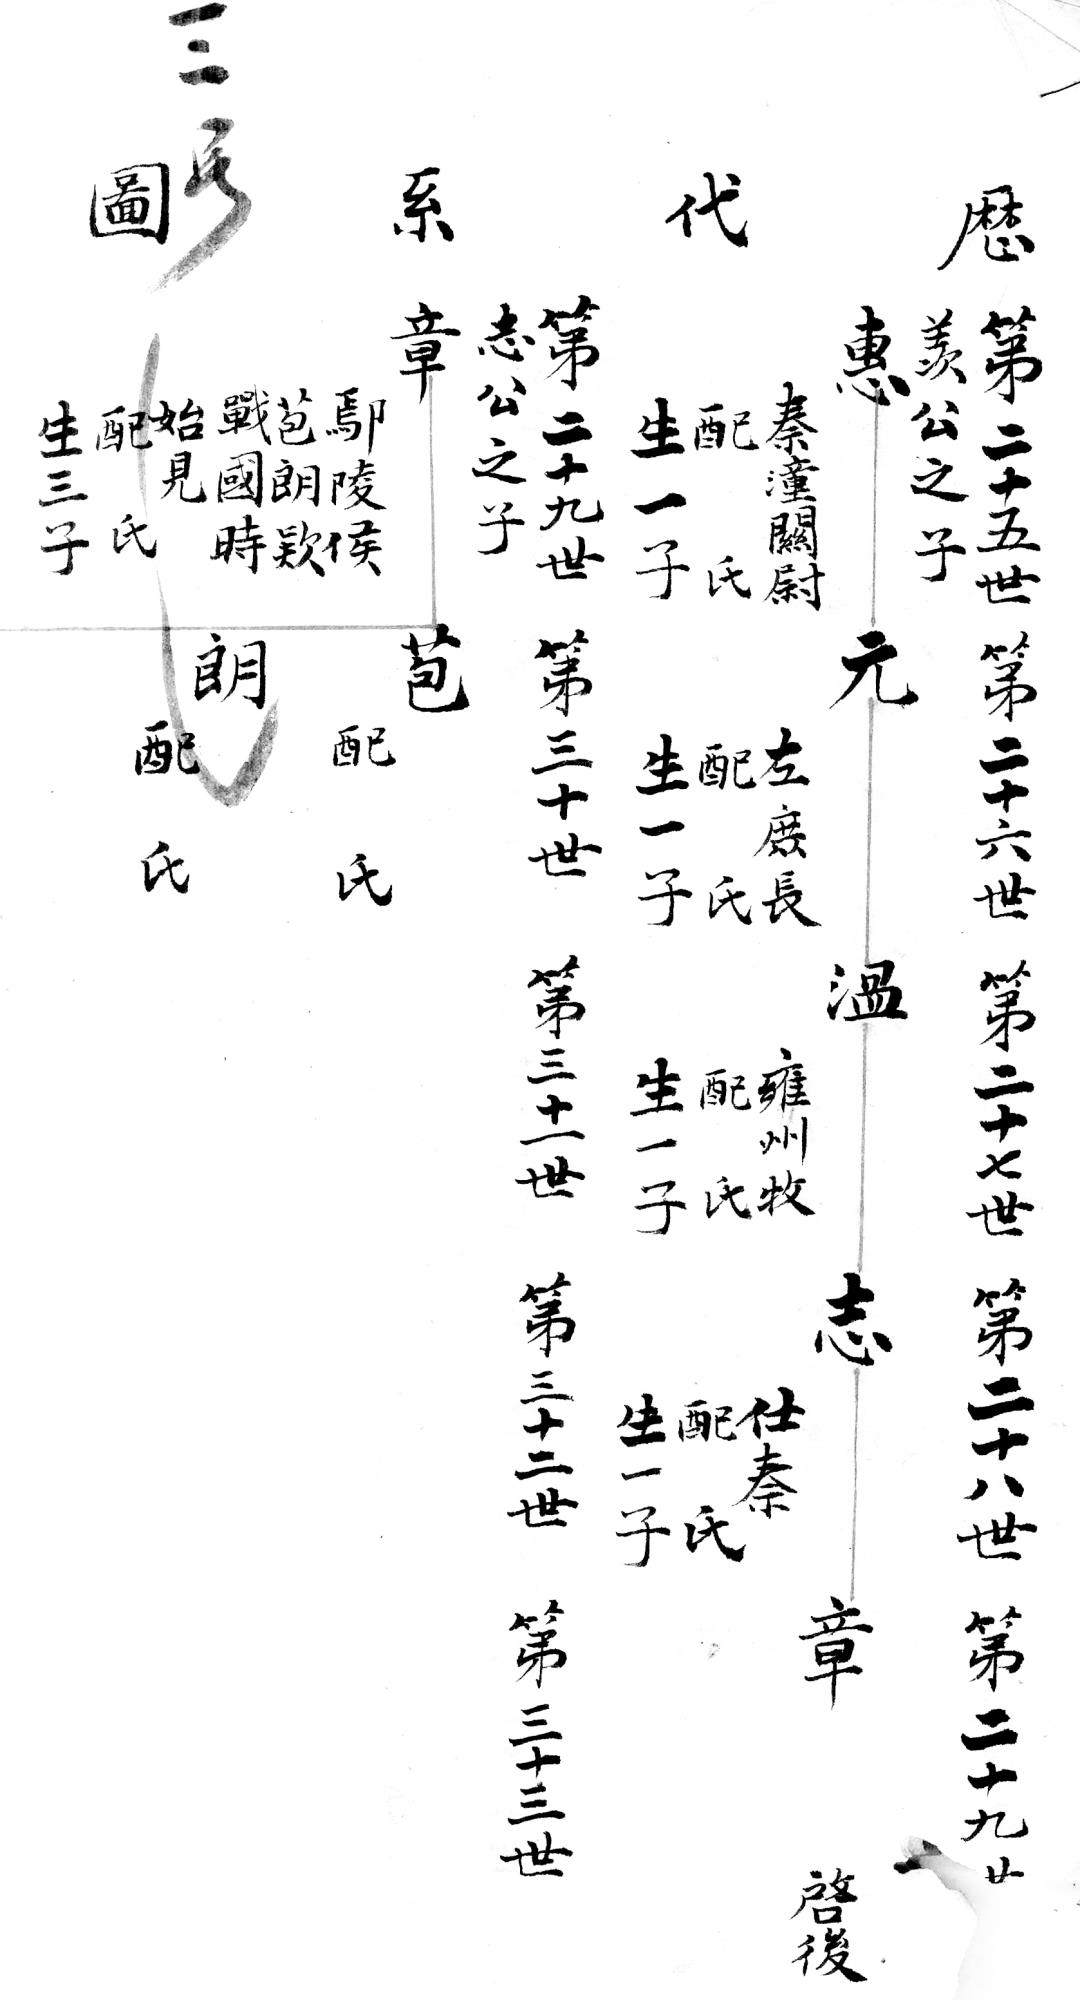 歷代系圖
第二十五世
第二十六世
第二十七世
第二十八世
第二十九
羨公之子
惠
元
溫
志
章
啓後
秦潼關尉
配 氏
生一子
左庶長
配 氏
生一子
雍州牧
配 氏
生一子
仕秦
配 氏
生一子
第二十九世
第三十世
第三十一世
第三十二世
第三十三世
志公之子
章
苞
鄢陵侯
苞朗欵
戰國時
始見
配 氏
生三子
配 氏
朗
配 氏